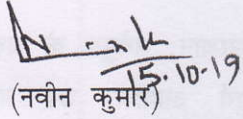 15.10.19
(नवीन कुमार)